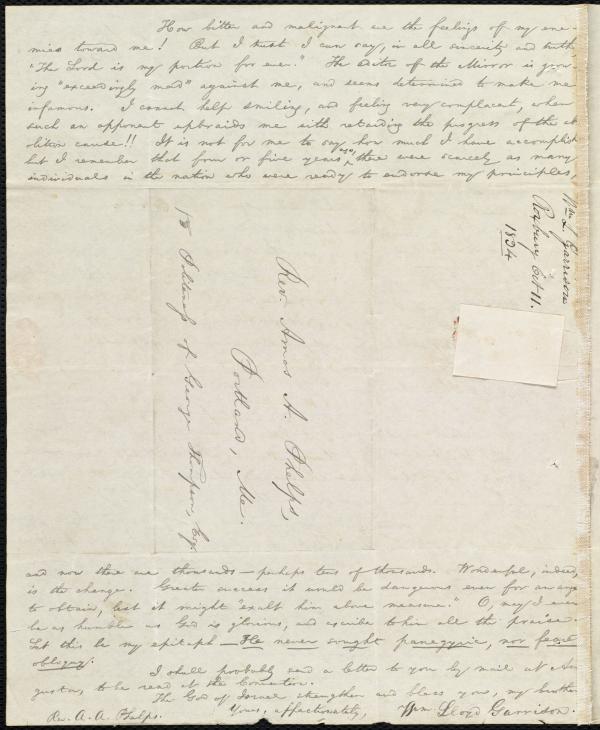 How bitter and malignant are the feelings of my ene-
mies toward me! But I trust I can say, in all sincerity and truth,
"The Lord is my portion for ever." The editor of the Mirror is grow-
ing "exceedingly mad" against me, and seems determined to make me
infamous. I cannot help smiling, and feeling very complacent, when
such an opponent upbraids me with retarding the progress of the ab-
olition cause!! It is not for me to say how much I have accomplish
but I remember that four or five years ago, there were scarcely as many
individuals in the nation who were ready to endorse my principles,
Wm L. Garrison
Roxbury Oct 11.
1834
Rev. Amos A. Phelps,
Portland, Me.
Politeness of George Thompson, Esq.
and now there are thousands — perhaps tens of thousands. Wonderful, indeed,
is the change. Greater success it would be dangerous even for an angel
to obtain, lest it might "exalt him above measure." O, may I ever
be as humble as God is glorious, and ascribe to him all the praise.
Let this be my epitaph — He never sought panegyric, nor feared
obloquy.
I shall probably send a letter to you by mail at Au-
gusta, to be read at the Convention.
The God of Israel strengthen and bless you, my brother
Yours, affectionately,
Wm. Lloyd Garrison.
Rev. A. A. Phelps.